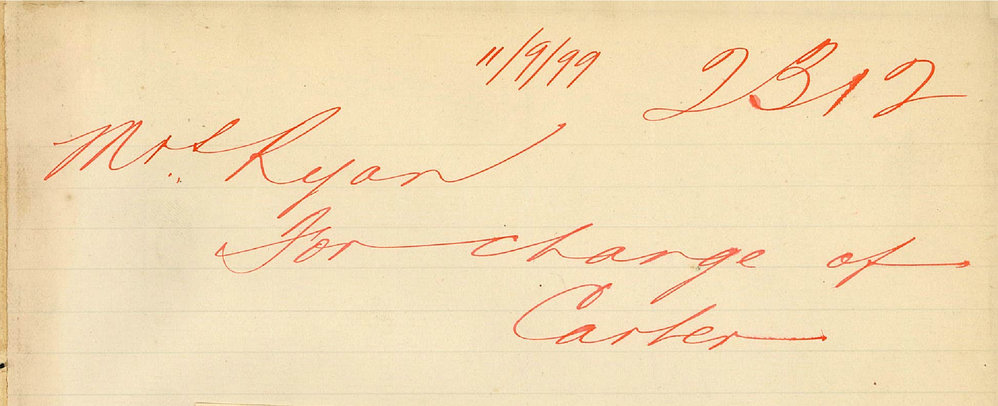 11/9/99 2312
Mrs. Ryan
For change of
Carter